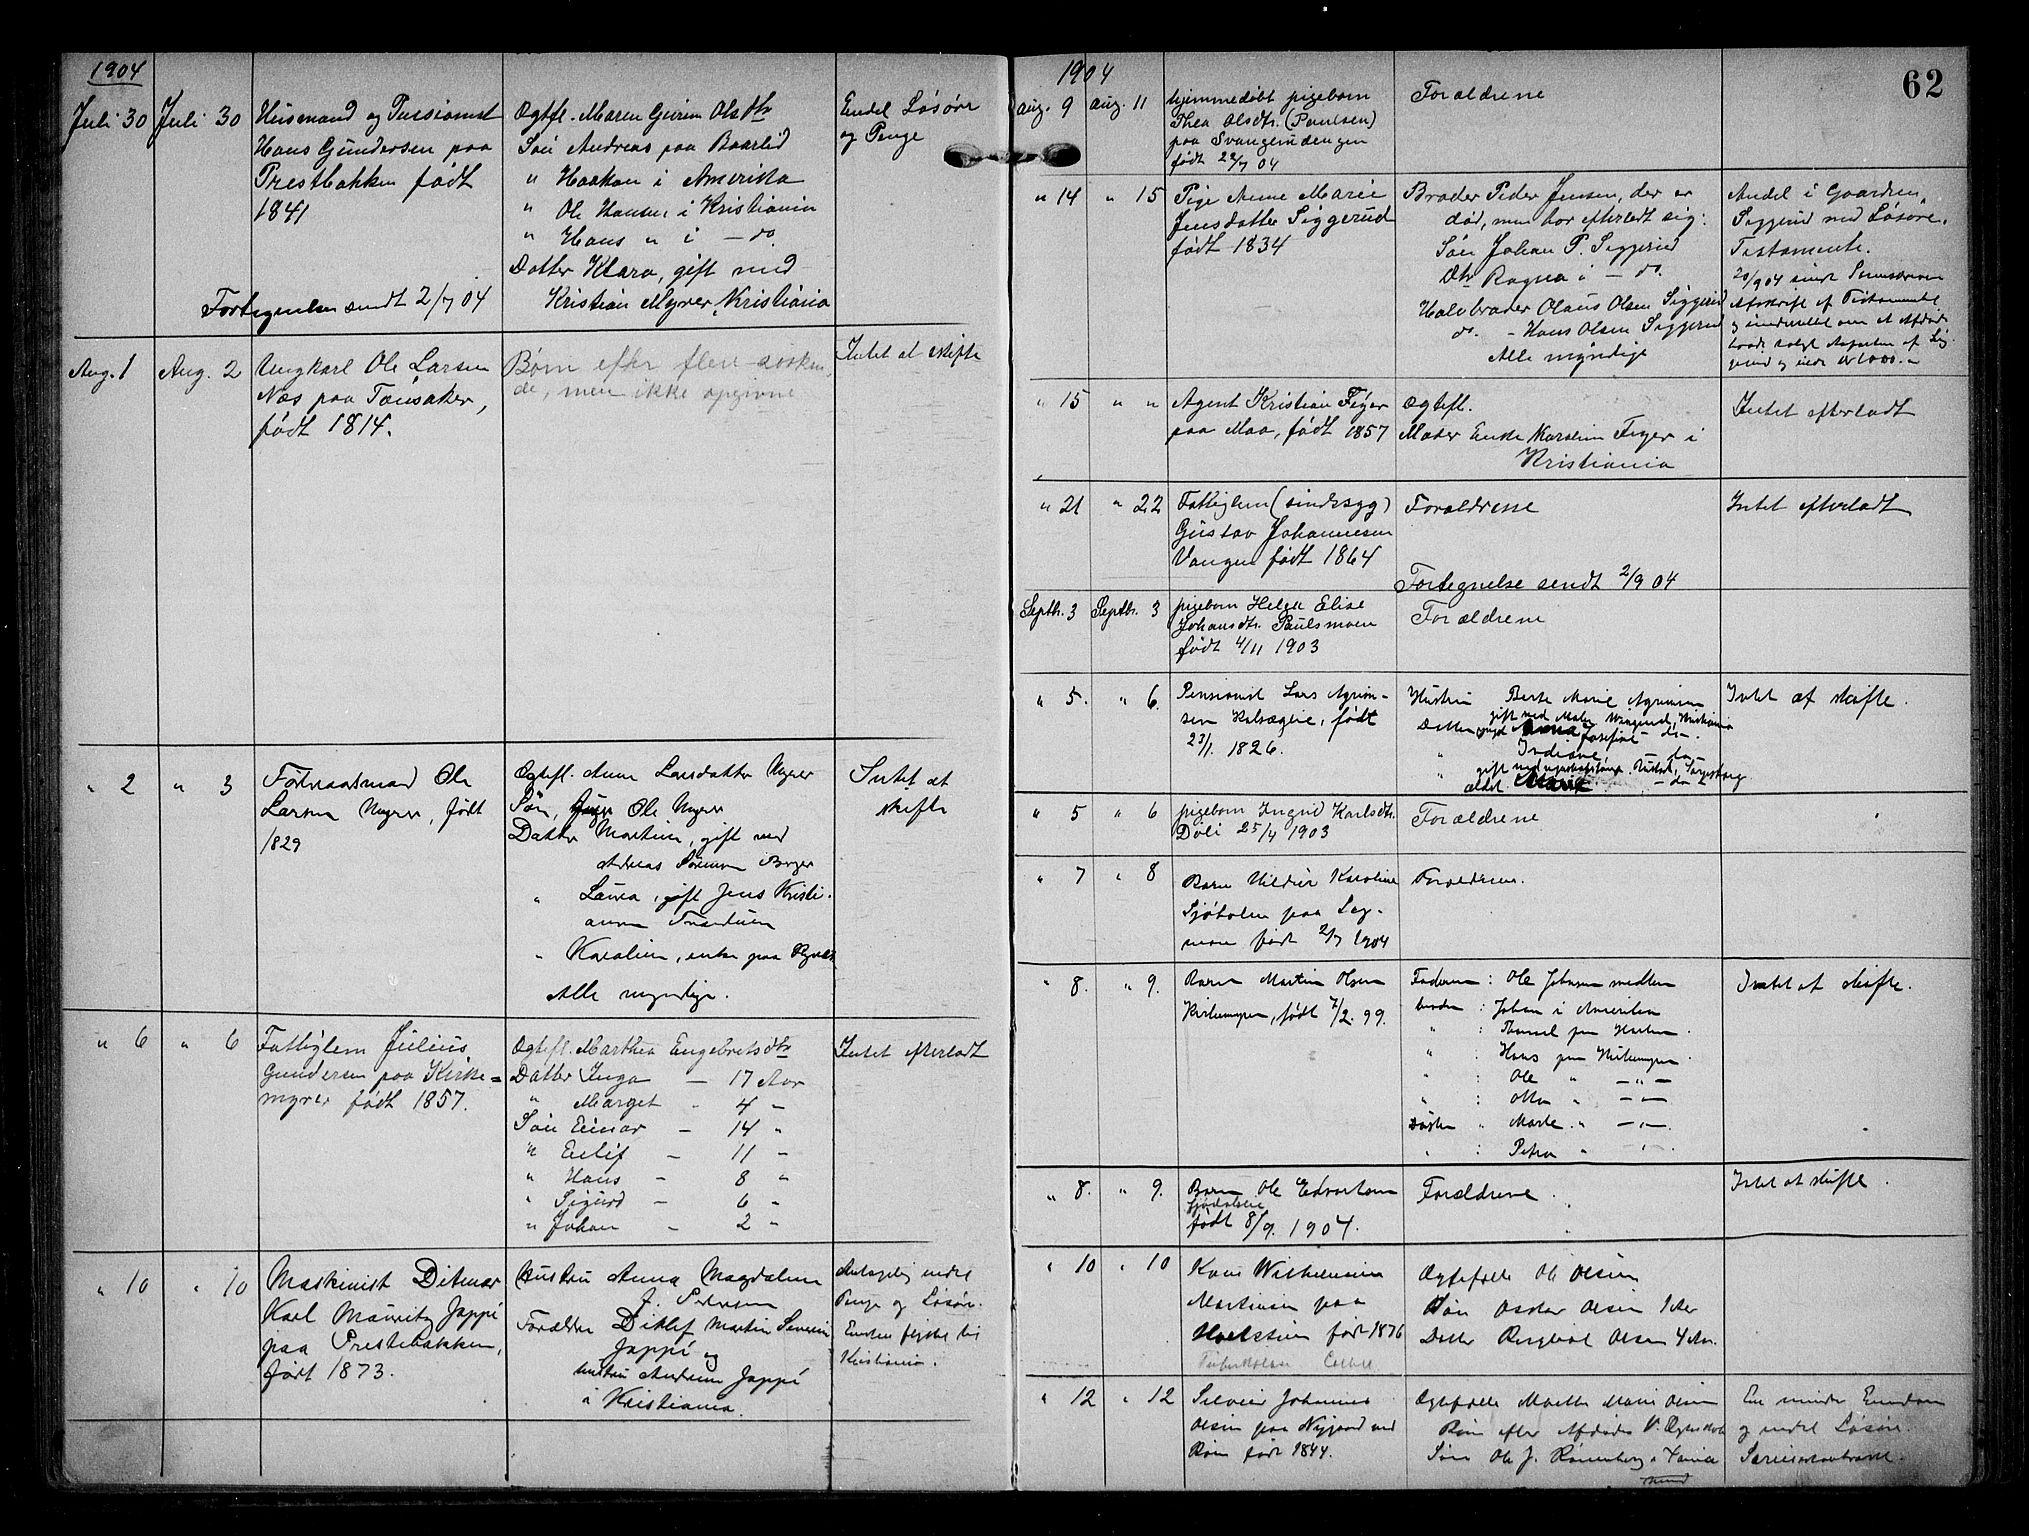 1904
Juli 30 Juli 30 Husmand og Pensionist
Hans Gundersen paa
Prestbakken født
1841
Fortegnelsen sendt 2/7 04
Ogtfl. Maren Olsdtr
Søn Andreas paa Baarlid
" Haakon i Amerika
" Ole Hansen i Kristiania
" Hans " i - do.
Datter Klara, gift med
Kristian Myrer, Kristiania
Endel Løsøre
og Penge
Aug. 1 Aug. 2 Ungkarl Ole Larsen
Næs paa Tønsaker,
født 1814.
Børn efter flere søsken-
de, men ikke opgivne
Intet at skifte
" 2 " 3 Ole
Larsen Myrer, født
1829
Ogtefl. Anne Larsdatter Myrer
Søn, Ole Myrer
Datter Martine, gift med
Andreas Sørensen
" Laura, gift Jens Kristi-
ansen
" Karoline, enke paa
Alle myndige.
Intet at
skifte
" 6 " 6 Fattiglem Julius
Gundersen paa Kirke=
myrer født 1857.
Ogtefl. Marthea Engebretsdtr
Datter Inga - 17 Aar
" Marget - 4 -
Søn Einar - 14 "
" Eilif - 11 -
" Hans - 8 "
" Sigurd - 6 -
" Johan - 2 "
Intet efterladt
" 10 " 10 Maskinist Ditmar
Karl Mauritz Jappé
paa Prestebakken,
født 1873.
Hustru Anna Magdalene
J. Petersen
Forældre Ditlef Martin Severin
Jappé og
hustru Andrine Jappé
i Kristiania.
Antagelig endel
Penge og Løsøre.
Enken flyttet til
Kristiania.
62
1904
Aug. 9 Aug. 11 hjemmedøbt pigebarn
Thea Olsdtr. (Paulsen)
paa Svangerudengen
født 22/7 04
Forældrene
" 14 " 15 Pige Anne Marie
Jensdatter Siggerud
født 1834
Broder Peder Jensen, der er
død, men har efterladt sig:
Søn Johan P. Siggerud
Dtr Ragna i - do.
Halvbroder Olaus Olsen Siggerud
do. - Hans Olsen Siggerud
Alle myndige
Andel i Gaarden
Siggerud med Løsøre.
Testamente.
20/9 04 sendt
Afskrift af Testamentet
" 15 " " Agent Kristian Fejer
paa Moa, født 1857
Ogtefl.
Moder Enke Karoline Fejer i
Kristiania
Intet efterladt
" 21 " 22 Fattiglem (sindssyg)
Gustav Johannesen
Vangen født 1864
Forældrene
Fortegnelse sendt 2/9 04
Intet efterladt
Septbr. 3 Septbr. 3 pigebarn Helga Elise
Johansdtr. Paulsmoen
født 4/11 1903
Forældrene
" 5. " 6. Pensionist Lars
født
23/1. 1826.
Hustru Berte Marie
Intet at skifte.
" 5 " 6 pigebarn Ingrid Karlsdtr.
Døli 25/4 1903
Forældrene
" 7 " 8 Barn Hildur Karoline
Sjøtolen paa Lag-
moen født 2/7 1904
Forældrene.
" 8. " 9. Barn Martin Olsen
Kirkemyren, født 7/2. 99.
Faderen: Ole Johansen
broder : Johan i Amerika
Hans paa Kirkemyren
" : Ole " - " -
" : Otto " - " -
Søster " Marte " - " -
" : Petra " "
Intet at skifte.
" 8. " 9. Barn Ole Edvartsen
født 8/9. 1904.
Forældrene.
Intet at skifte.
" 10 " 10 Kone Wilhelmine
Martinsen paa
Holstein født 1876
Ogtefælle Ole Olsen
Søn Oskar Olsen 1 Aar
Datter Ragnhil Olsen 4 Aar.
" 12 " 12 Johannes
Olsen paa Nygaard ved
født 1844.
Ogtefælle Marthe Marie Olsen
Børn efter Afdøde
Søn Ole J. Rønneberg
En mindre Eiendom
og endel Løsøre